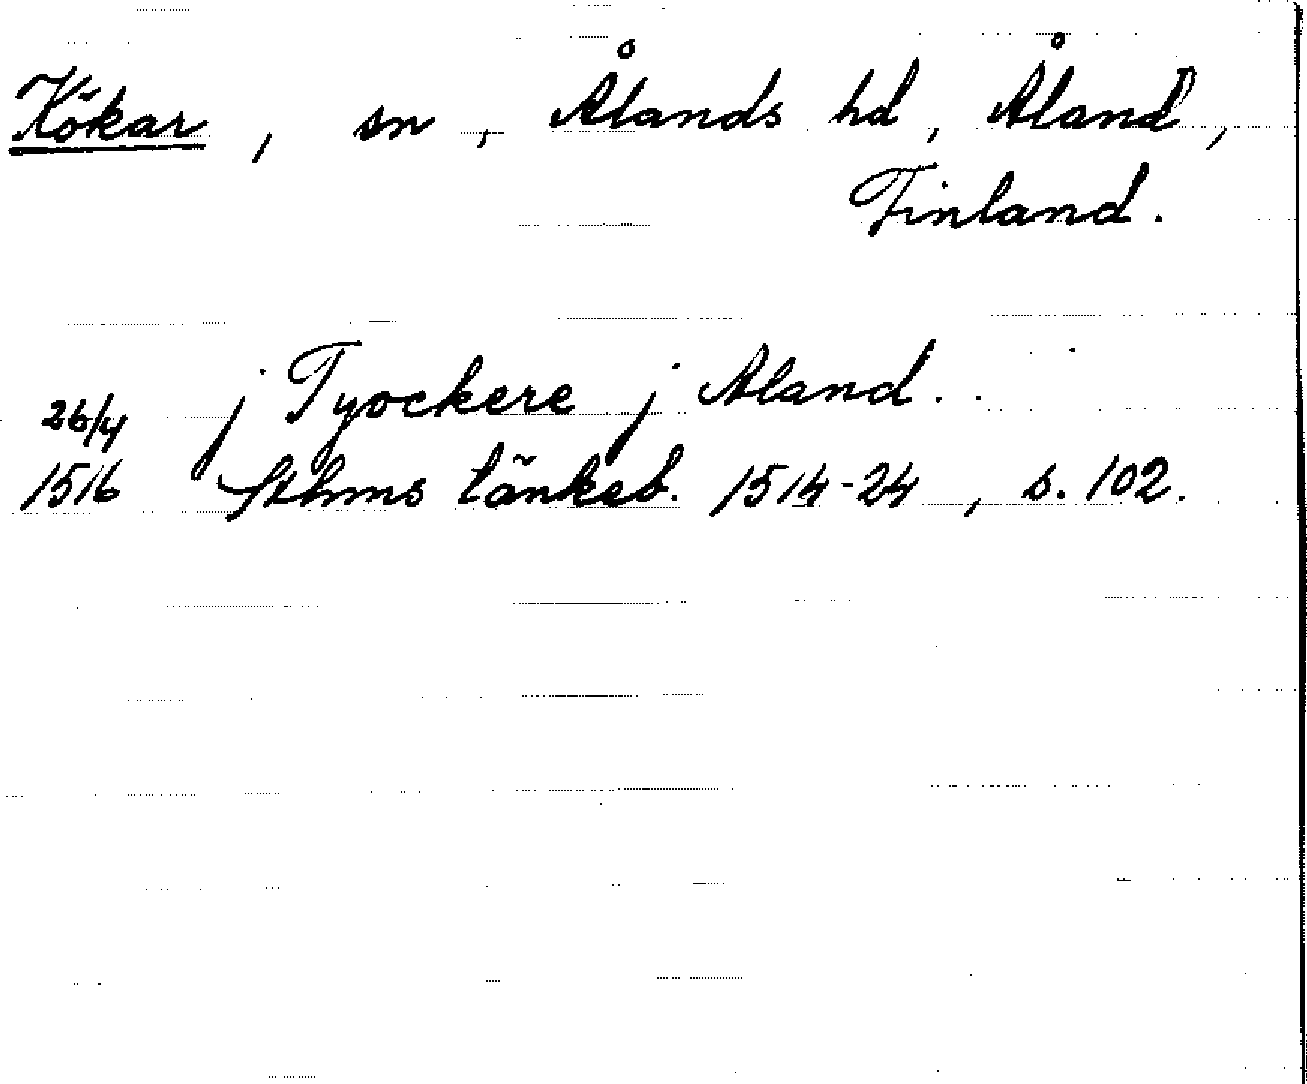 Kökar, sn, Ålands hd, Åland,
Finland.
j Tyockere j Aland.
26/4
1516 Sthms tänkeb. 1514-24, s. 102.